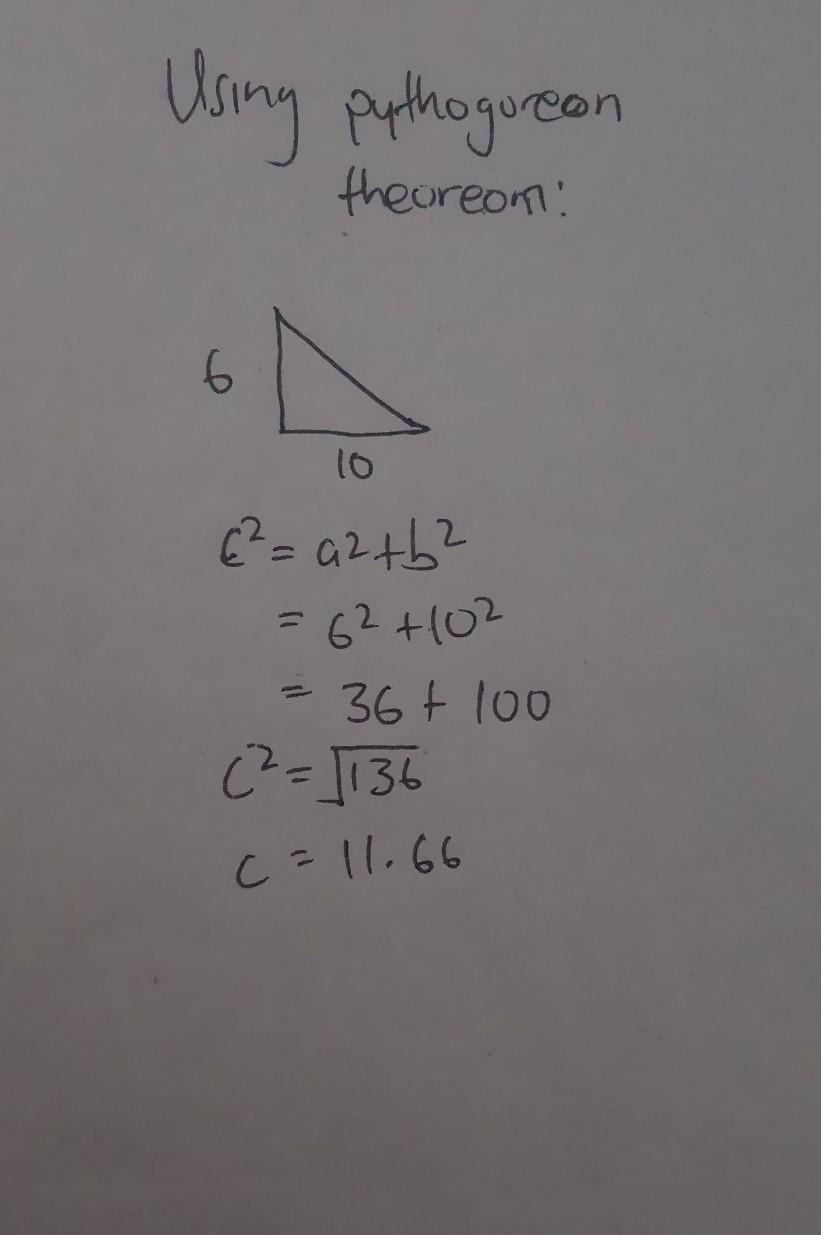 Using pythogoreon
theoreom:
6
10
c² = a2+b²
= 6² +10²
= 36 + 100
c² = √136
c = 11.66